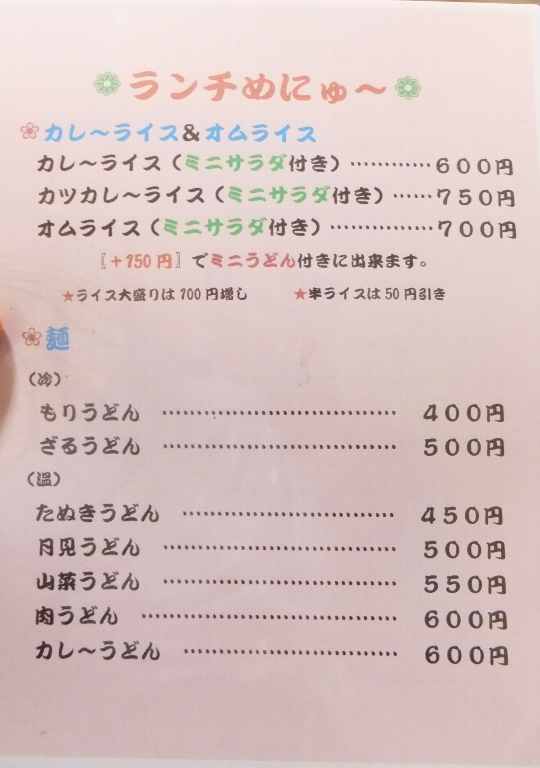 ランチめにゅ～
カレ～ライス&オムライス
カレ～ライス（ミニサラダ付き）…………600円
カツカレ～ライス（ミニサラダ付き）……750円
オムライス（ミニサラダ付き）……………700円
〖+150円〗でミニうどん付きに出来ます。
★ライス大盛りは100円増し ★半ライスは50円引き
麺
（冷）
もりうどん ……………………………… 400円
ざるうどん ……………………………… 500円
（温）
たぬきうどん …………………………… 450円
月見うどん ……………………………… 500円
山菜うどん ……………………………… 550円
肉うどん ………………………………… 600円
カレ～うどん …………………………… 600円